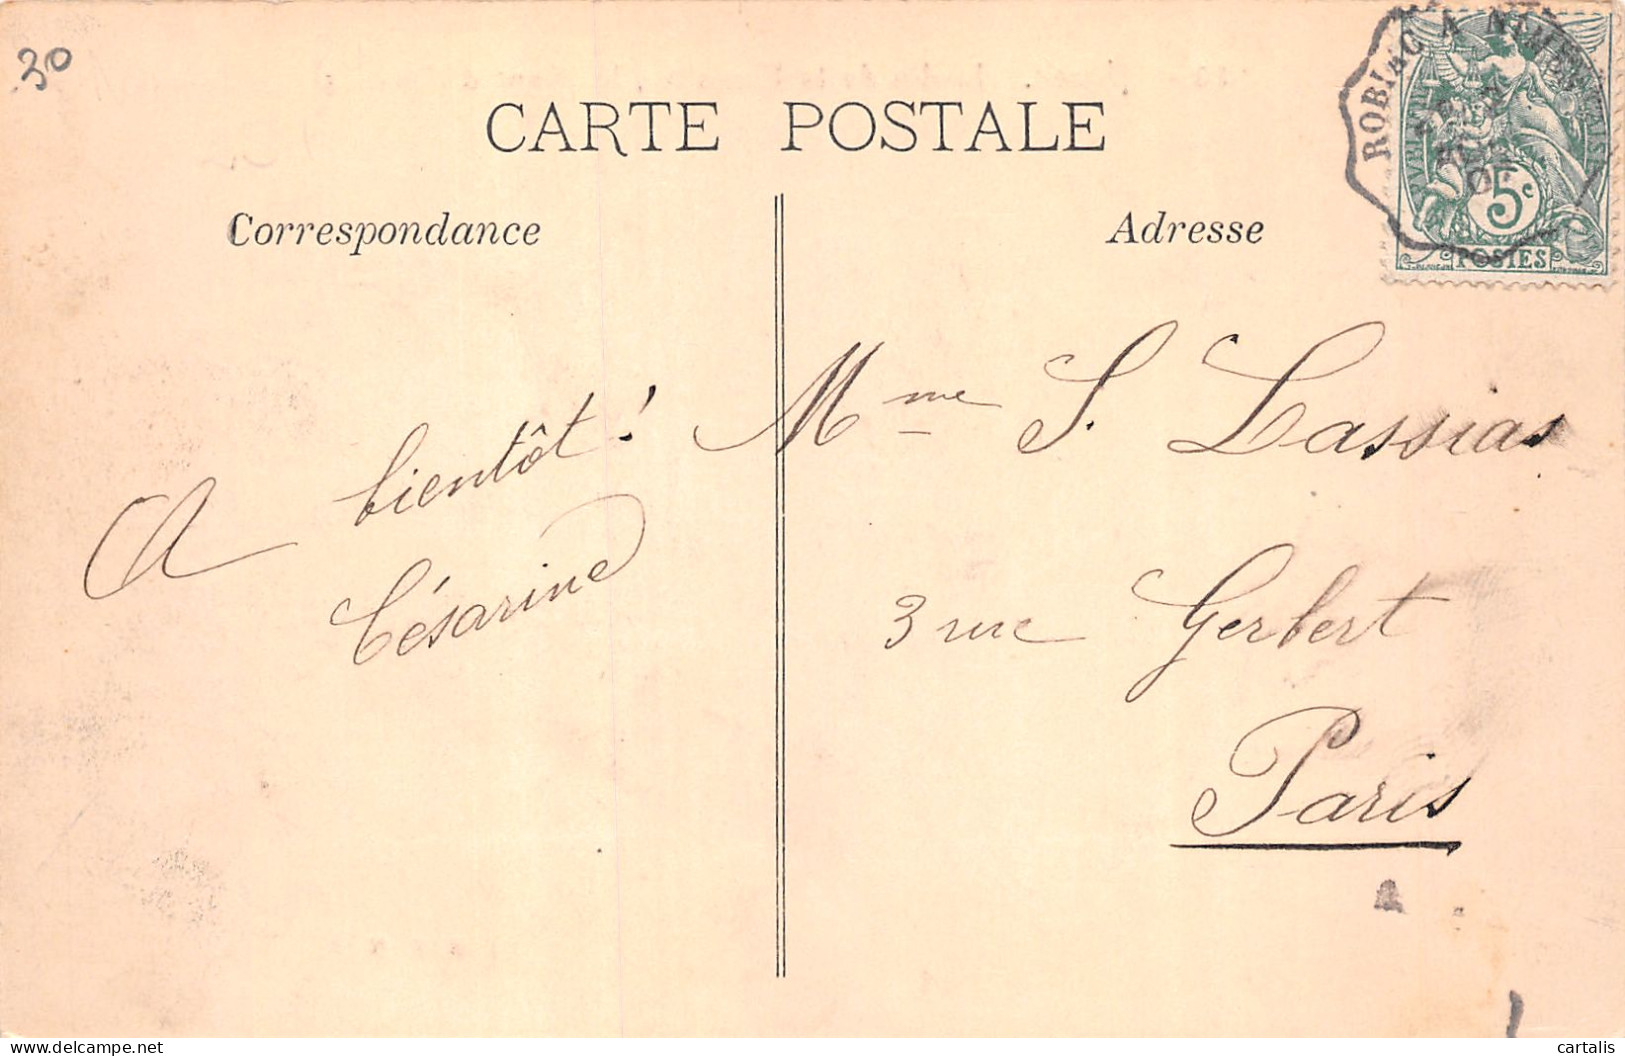 30
CARTE POSTALE
Correspondance
Adresse
ROBIAC A NIMES
5c
POSTES
A bientôt !
Césarine
Mme S. Lassias
3 rue Gerbert
Paris
cartalis